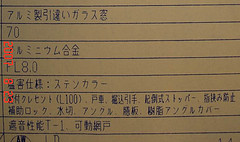 アルミ製引違いガラス窓
70
アルミニウム合金
FL8.0
仕様:ステンカラー
付クレセント(L100)、戸車、掘込引手、起倒式ストッパー、指挟み防止
補助ロック、水切、アングル、膳板、樹脂アングルカバー
遮音性能T-1、可動網戸